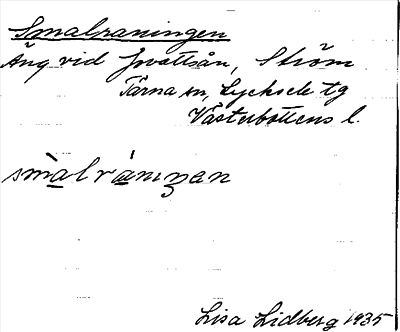 Smalraningen
Äng vid Jovattsån, Ström
Tärna sn, Lycksele tg
Västerbottens l.
smalrániŋen
Lisa Lidberg 1935